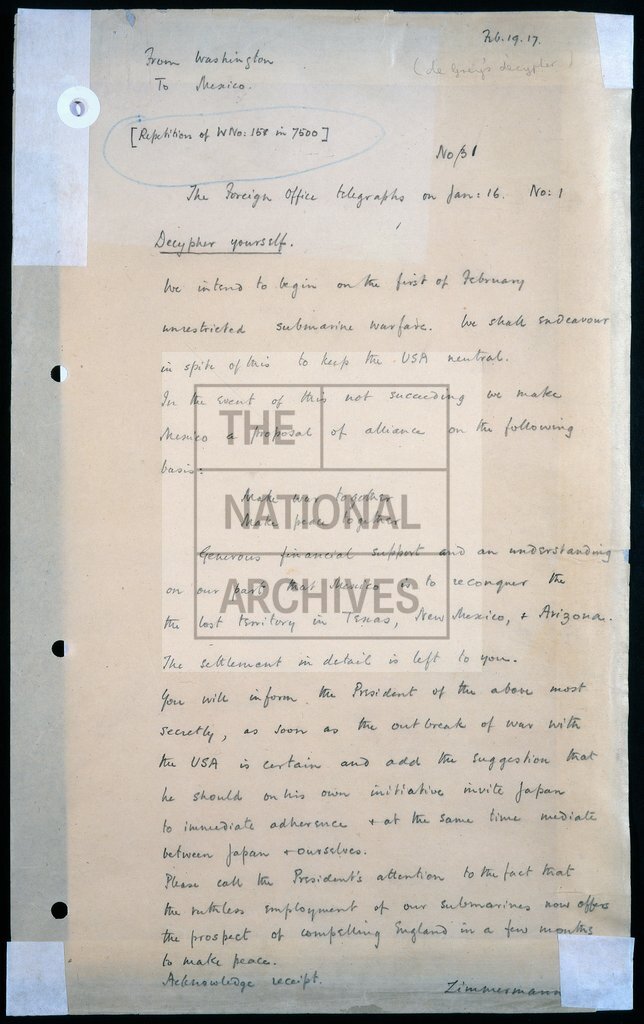 Feb. 19. 17.
(de Grey's decypher)
From Washington
To Mexico.
[Repetition of W No: 158 in 7500]
No 31
The Foreign Office telegraphs on Jan: 16. No: 1
Decypher yourself.
We intend to begin on the first of February
unrestricted submarine warfare. We shall endeavour
in spite of this to keep the USA neutral.
In the event of this not succeeding we make
Mexico a proposal of alliance on the following
basis:
Make war together
Make peace together
Generous financial support and an understanding
on our part that Mexico is to reconquer the
the lost territory in Texas, New Mexico, + Arizona.
The settlement in detail is left to you.
You will inform the President of the above most
secretly, as soon as the outbreak of war with
the USA is certain and add the suggestion that
he should on his own initiative invite Japan
to immediate adherence + at the same time mediate
between Japan + ourselves.
Please call the President's attention to the fact that
the ruthless employment of our submarines now offers
the prospect of compelling England in a few months
to make peace.
Acknowledge receipt.
Zimmermann
THE
NATIONAL
ARCHIVES